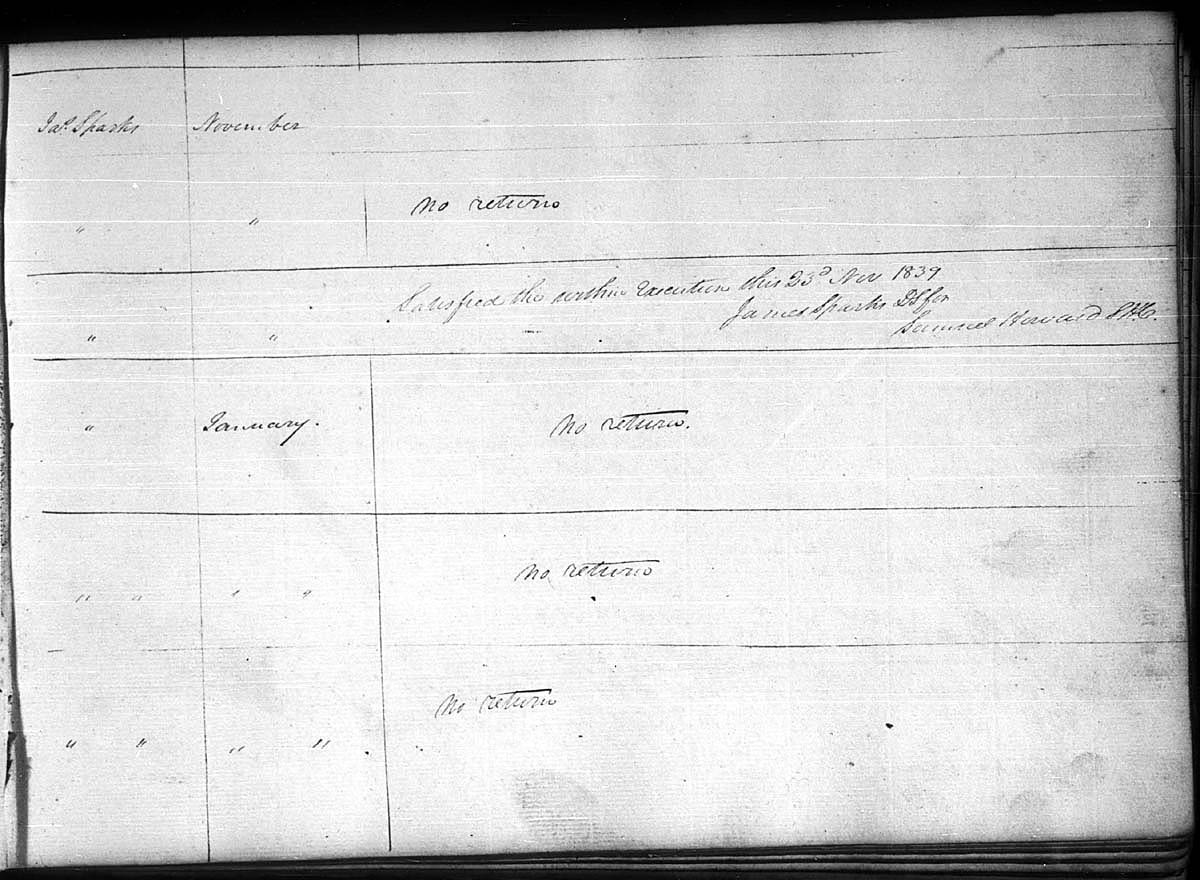 Jaˢ. Sparks November
no return
" "
Satisfied the within Execution this 23ᵈ Nov 1839
James Sparks DS for
Samuel Howard SHC.
" "
" January. No return.
No return
" " " "
No return
" " " "